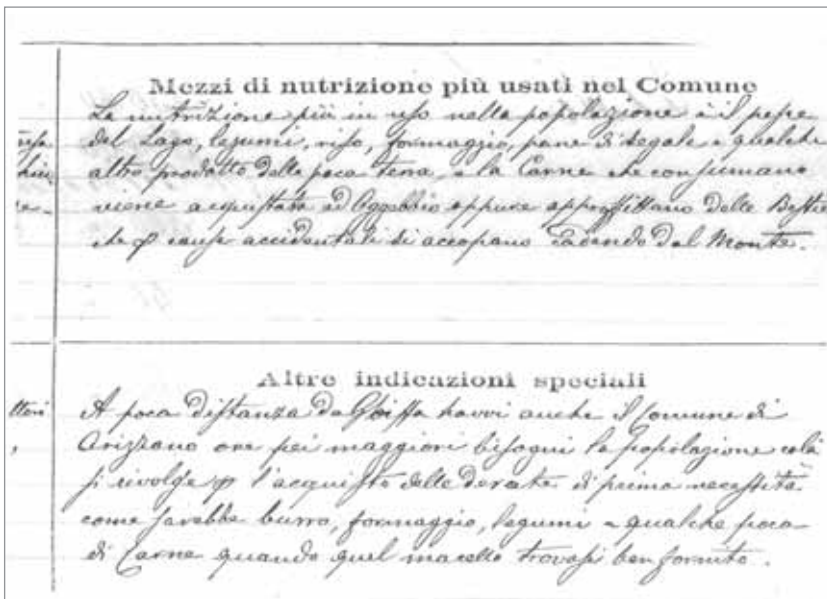 Mezzi di nutrizione più usati nel Comune
La nutrizione più in uso nella popolazione è il pesce
del Lago, legumi, riso, formaggio, pane di segale e qualche
altro prodotto della poca terra, e la Carne che consumano
viene acquistata ad Oggebbio oppure approffittano delle Bestie
che p cause accidentali si accopano cadendo dal Monte.
Altre indicazioni speciali
A poca distanza da Ghiffa havvi anche il Comune di
Arizzano ove pei maggiori bisogni la popolazione colà
si rivolge p l'acquisto delle derate di prima necessità
come sarebbe burro, formaggio, legumi e qualche poca
di Carne quando quel macello trovasi ben fornito.